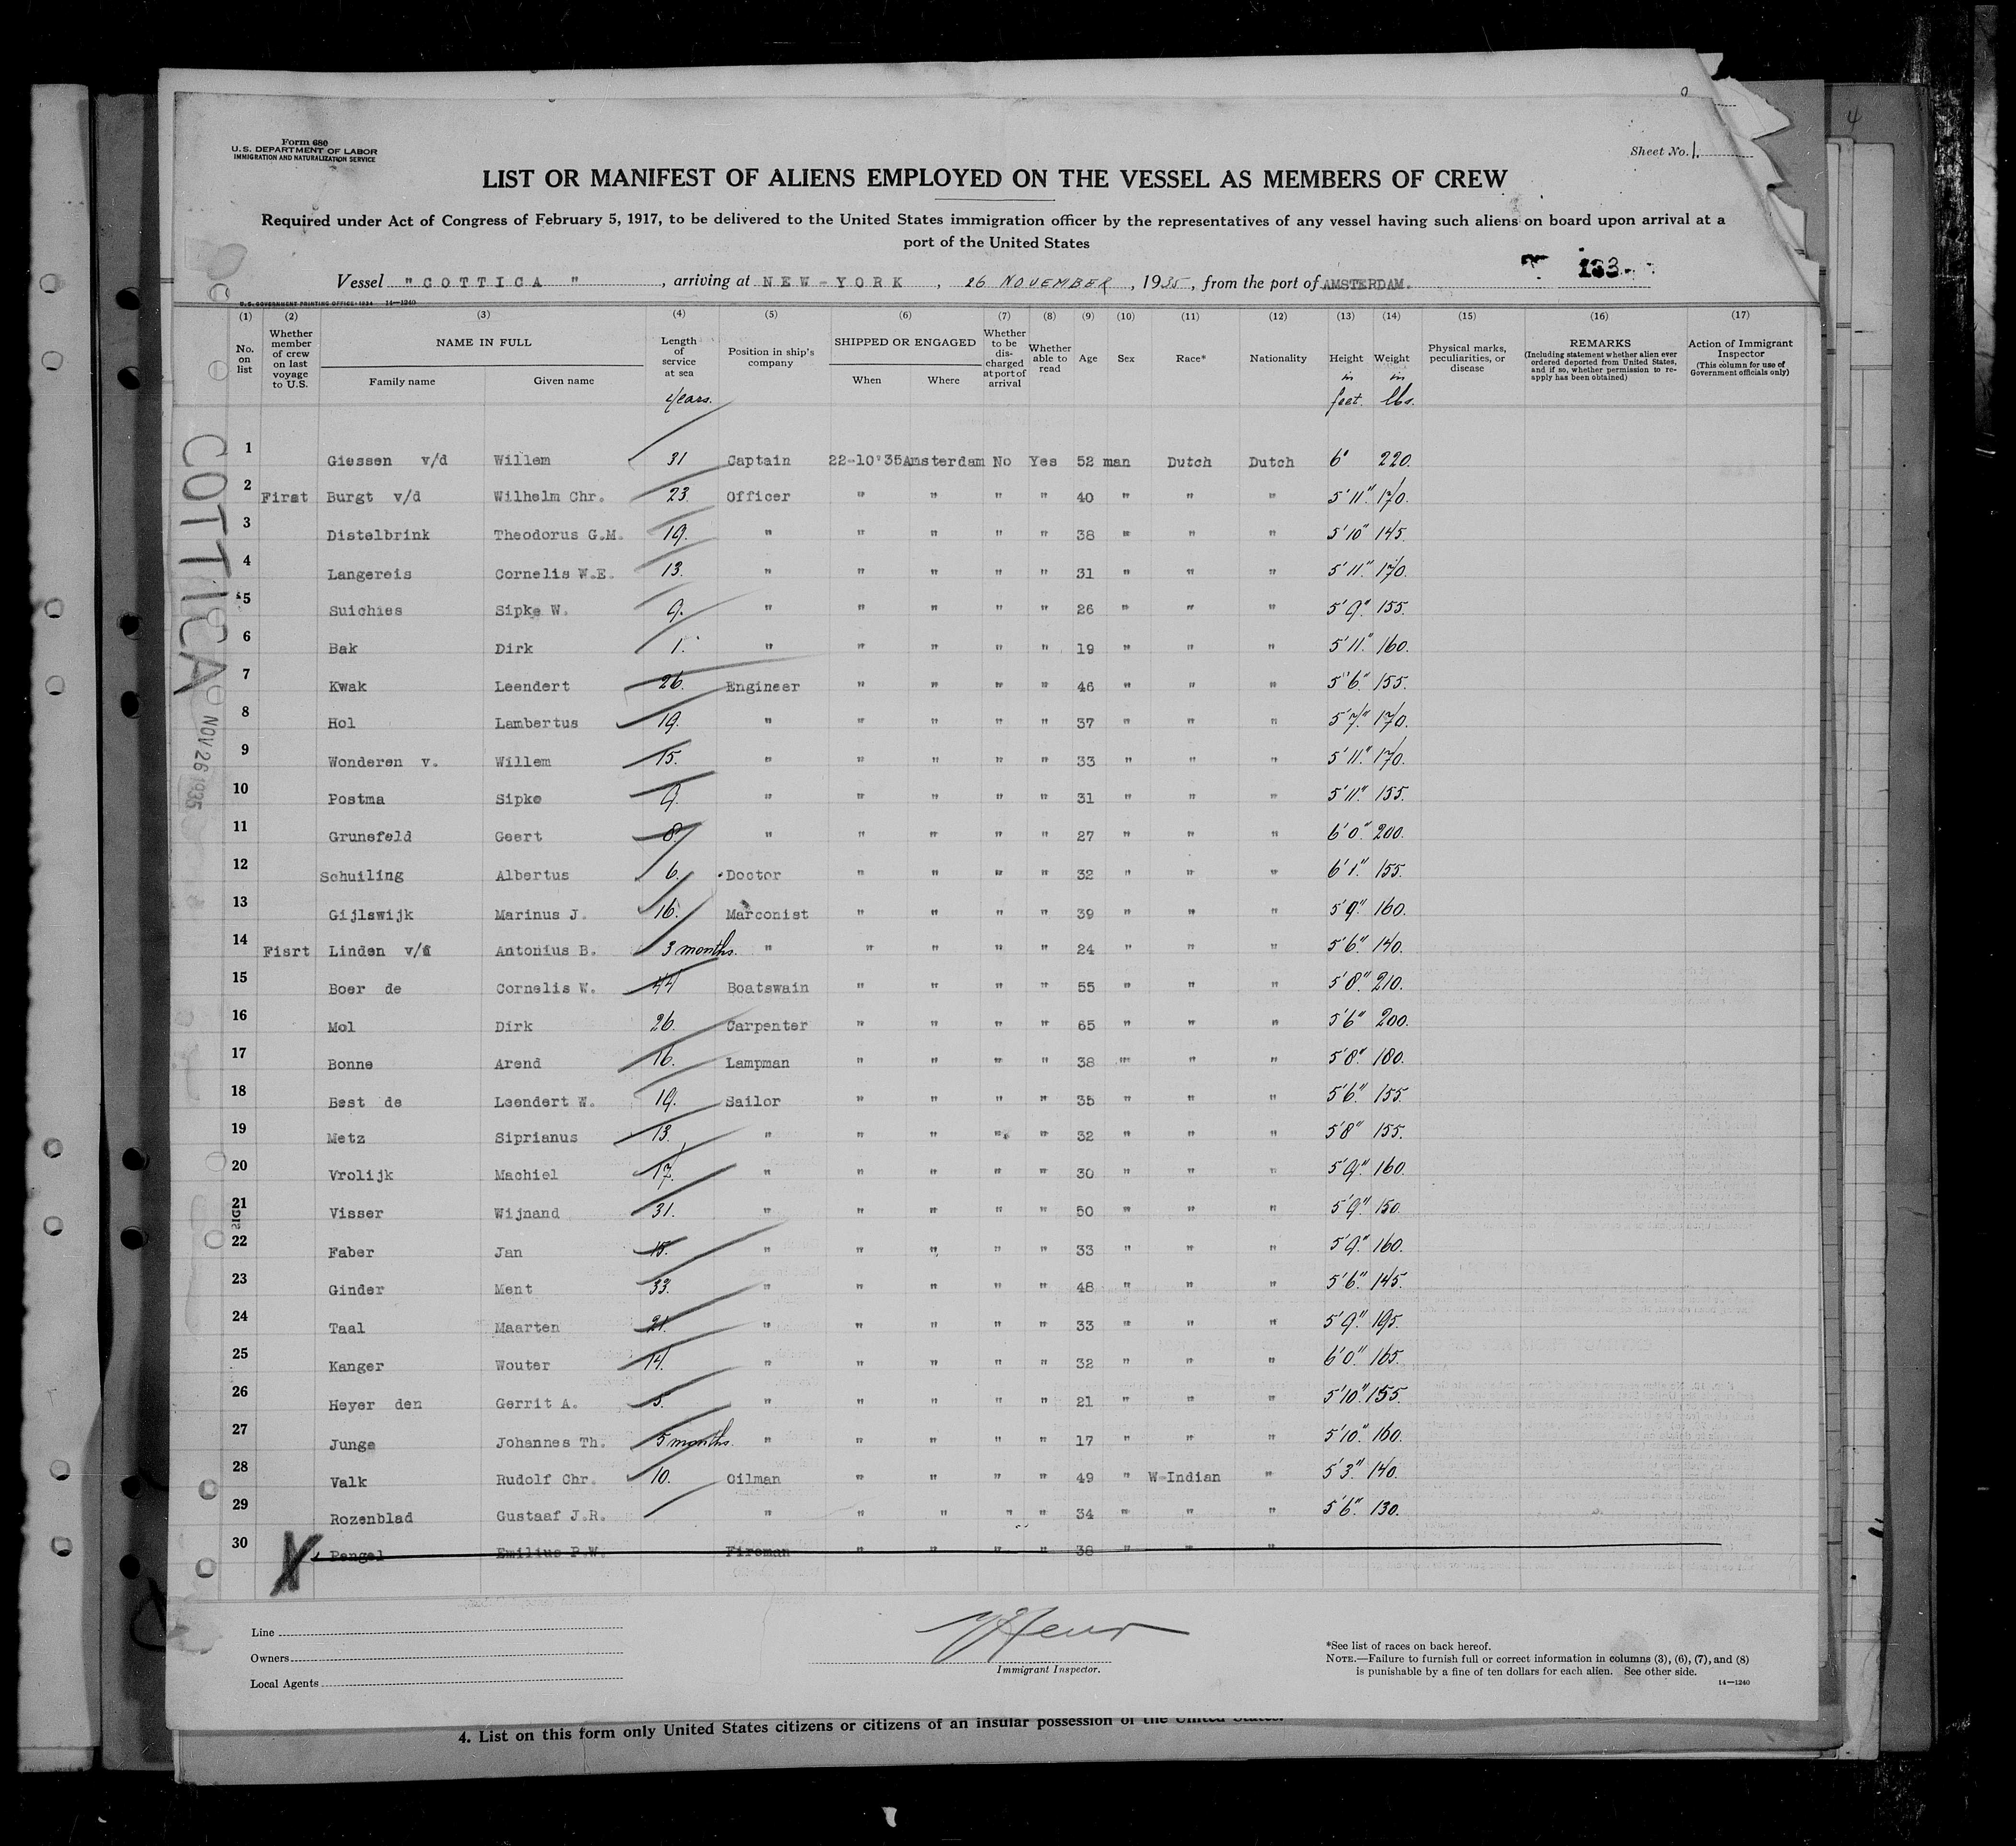 4
Form 680
U.S. DEPARTMENT OF LABOR
IMMIGRATION AND NATURALIZATION SERVICE
Sheet No. 1.
LIST OR MANIFEST OF ALIENS EMPLOYED ON THE VESSEL AS MEMBERS OF CREW
Required under Act of Congress of February 5, 1917, to be delivered to the United States immigration officer by the representatives of any vessel having such aliens on board upon arrival at a
port of the United States
133
Vessel "COTTICA", arriving at NEW-YORK, 26 NOVEMBER, 1935, from the port of AMSTERDAM.
U.S. GOVERNMENT PRINTING OFFICE: 1934 14—1240
(1) (2) (3) (4) (5) (6) (7) (8) (9) (10) (11) (12) (13) (14) (15) (16) (17)
No. on list Whether member of crew on last voyage to U.S. NAME IN FULL Family name Given name Length of service at sea Position in ship's company SHIPPED OR ENGAGED When Where Whether to be discharged at port of arrival Whether able to read Age Sex Race* Nationality Height Weight Physical marks, peculiarities, or disease REMARKS (Including statement whether alien ever ordered deported from United States, and if so, whether permission to re-apply has been obtained) Action of Immigrant Inspector (This column for use of Government officials only)
Years. in feet. in lbs.
1 Giessen v/d Willem 31 Captain 22-10'35 Amsterdam No Yes 52 man Dutch Dutch 6' 220.
2 First Burgt v/d Wilhelm Chr. 23. Officer " " " " 40 " " " 5'11" 170.
3 Distelbrink Theodorus G.M. 19. " " " " " 38 " " " 5'10" 145.
4 Langereis Cornelis W.E. 13. " " " " " 31 " " " 5'11" 170.
5 Suichies Sipke W. 9. " " " " " 26 " " " 5'9" 155.
6 Bak Dirk 1. " " " " " 19 " " " 5'11" 160.
7 Kwak Leendert 26. Engineer " " " " 46 " " " 5'6" 155.
8 Hol Lambertus 19. " " " " " 37 " " " 5'7" 170.
9 Wonderen v. Willem 15. " " " " " 33 " " " 5'11" 170.
10 Postma Sipke 9. " " " " " 31 " " " 5'11" 155.
11 Grunefeld Geert 8. " " " " " 27 " " " 6'0" 200.
12 Schuiling Albertus 6. Doctor " " " " 32 " " " 6'1" 155.
13 Gijlswijk Marinus J. 16. Marconist " " " " 39 " " " 5'9" 160.
14 Fisrt Linden v/d Antonius B. 3 months. " " " " " 24 " " " 5'6" 140.
15 Boer de Cornelis W. 44 Boatswain " " " " 55 " " " 5'8" 210.
16 Mol Dirk 26. Carpenter " " " " 65 " " " 5'6" 200.
17 Bonne Arend 16. Lampman " " " " 38 " " " 5'8" 180.
18 Best de Leendert W. 19. Sailor " " " " 35 " " " 5'6" 155.
19 Metz Siprianus 13. " " " " " 32 " " " 5'8" 155.
20 Vrolijk Machiel 17. " " " " " 30 " " " 5'9" 160.
21 Visser Wijnand 31. " " " " " 50 " " " 5'9" 150.
22 Faber Jan 15. " " " " " 33 " " " 5'9" 160.
23 Ginder Ment 33. " " " " " 48 " " " 5'6" 145.
24 Taal Maarten 21. " " " " " 33 " " " 5'9" 195.
25 Kanger Wouter 14. " " " " " 32 " " " 6'0" 165.
26 Heyer den Gerrit A. 5. " " " " " 21 " " " 5'10" 155.
27 Junge Johannes Th. 5 months. " " " " " 17 " " " 5'10" 160.
28 Valk Rudolf Chr. 10. Oilman " " " " 49 " W-Indian " 5'3" 140.
29 Rozenblad Gustaaf J.R. " " " " " 34 " " " 5'6" 130.
30 X Pengel Emilius P.W. Fireman " " " " 38 " " "
COTTICA
NOV 26 1935
Line
Owners
Local Agents
Immigrant Inspector.
*See list of races on back hereof.
NOTE.—Failure to furnish full or correct information in columns (3), (6), (7), and (8)
is punishable by a fine of ten dollars for each alien. See other side.
14—1240
4. List on this form only United States citizens or citizens of an insular possession of the United States.